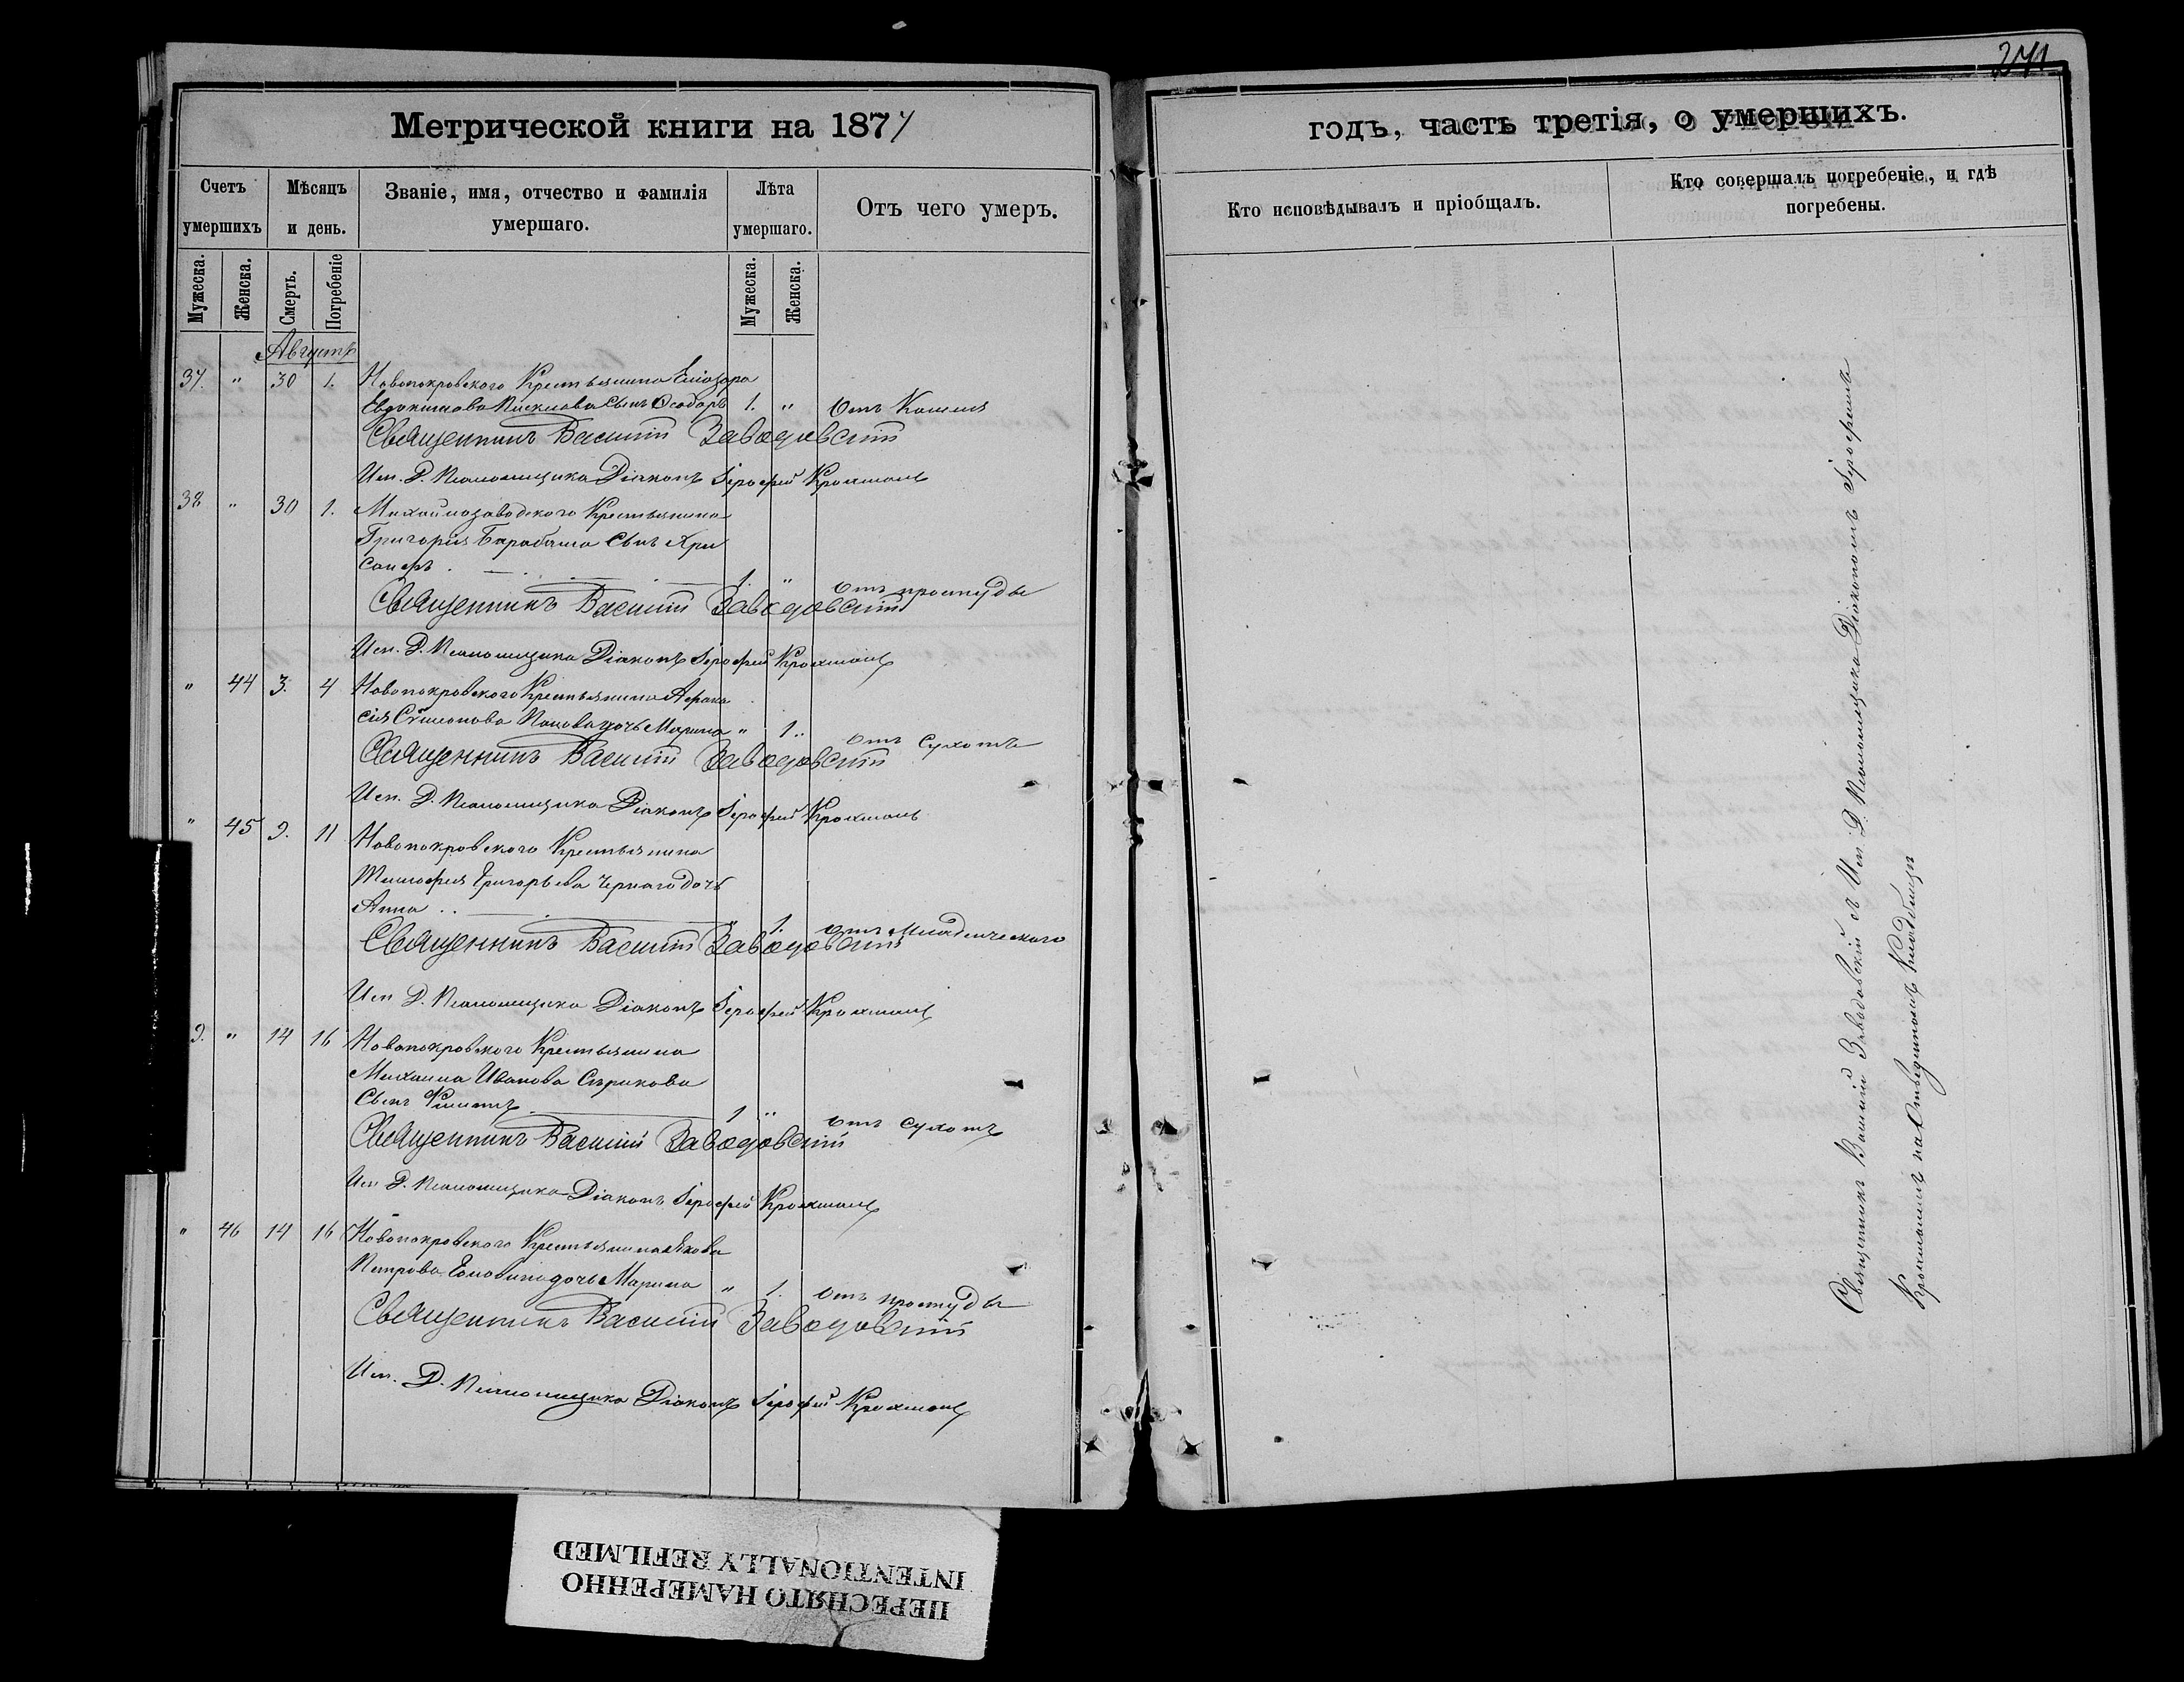 271
Метрической книги на 1877
годъ, часть третія, о умершихъ.
Счетъ умершихъ
Мѣсяцъ и день.
Званіе, имя, отчество и фамилія умершаго.
Лѣта умершаго.
Отъ чего умеръ.
Кто исповѣдывалъ и пріобщалъ.
Кто совершалъ погребеніе, и гдѣ погребены.
Мужеска.
Женска.
Смерть.
Погребеніе
Мужеска.
Женска.
Августъ
37. " 30 1. Новопокровского Крестьянина
Евдокимова сынъ Ѳеодоръ 1. " отъ Кашля
Священникъ Василій Заводовскій
Исп. Д. Псаломщика Діаконъ Іерофей
38 " 30 1. Михайлозаводского Крестьянина
Григорія Барабаша сынъ Хри
санфъ. 1. " отъ простуды
Священникъ Василій Заводовскій
Исп. Д. Псаломщика Діаконъ Іерофей
" 44 3. 4 Новопокровского Крестьянина Афана
сія Сѵмеонова Попова дочь Марина " 1. отъ сухотъ
Священникъ Василій Заводовскій
Исп. Д. Псаломщика Діаконъ Іерофей
" 45 9. 11 Новопокровского Крестьянина
Тимофея Григорьева Чернаго дочь
Анна " 1. отъ младенческого
Священникъ Василій Заводовскій
Исп Д. Псаломщика Діаконъ Іерофей
9. " 14 16 Новопокровского Крестьянина
Михаила Иванова Сѣрикова
сынъ 1 " отъ сухотъ
Священникъ Василій Заводовскій
Исп Д. Псаломщика Діаконъ Іерофей
" 46 14 16 Новопокровского Крестьянина Якова
Петрова дочь Марина " 1. отъ простуды
Священникъ Василій Заводовскій
Исп. Д. Псаломщика Діаконъ Іерофей
Священникъ Василій Заводовскій и Исп. Д. Псаломщика Діакономъ Іерофеемъ
на Отведенномъ Кладбищѣ
ПЕРЕСНЯТО НАМЕРЕННО
INTENTIONALLY REFILMED